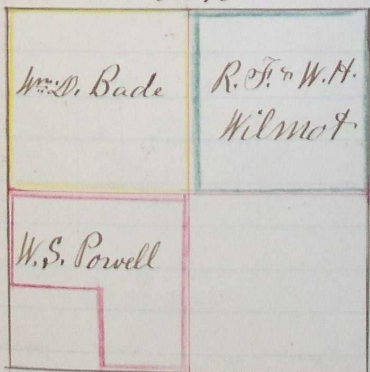 Wm. D. Bade
R. F. & W. H.
Wilmot
W. S. Powell